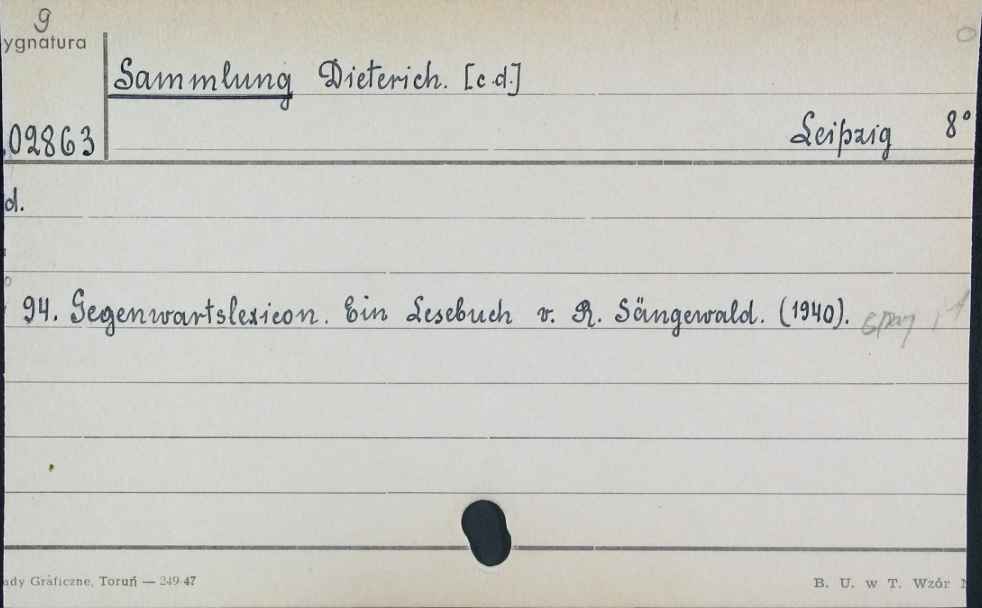 9
ygnatura
Sammlung Dieterich. [c.d.]
02863
Leipzig 8°
d.
94. Gegenwartslexicon. Ein Lesebuch v. R. Sängewald. (1940).
ady Graficzne, Toruń — 249-47
B. U. w T. Wzór